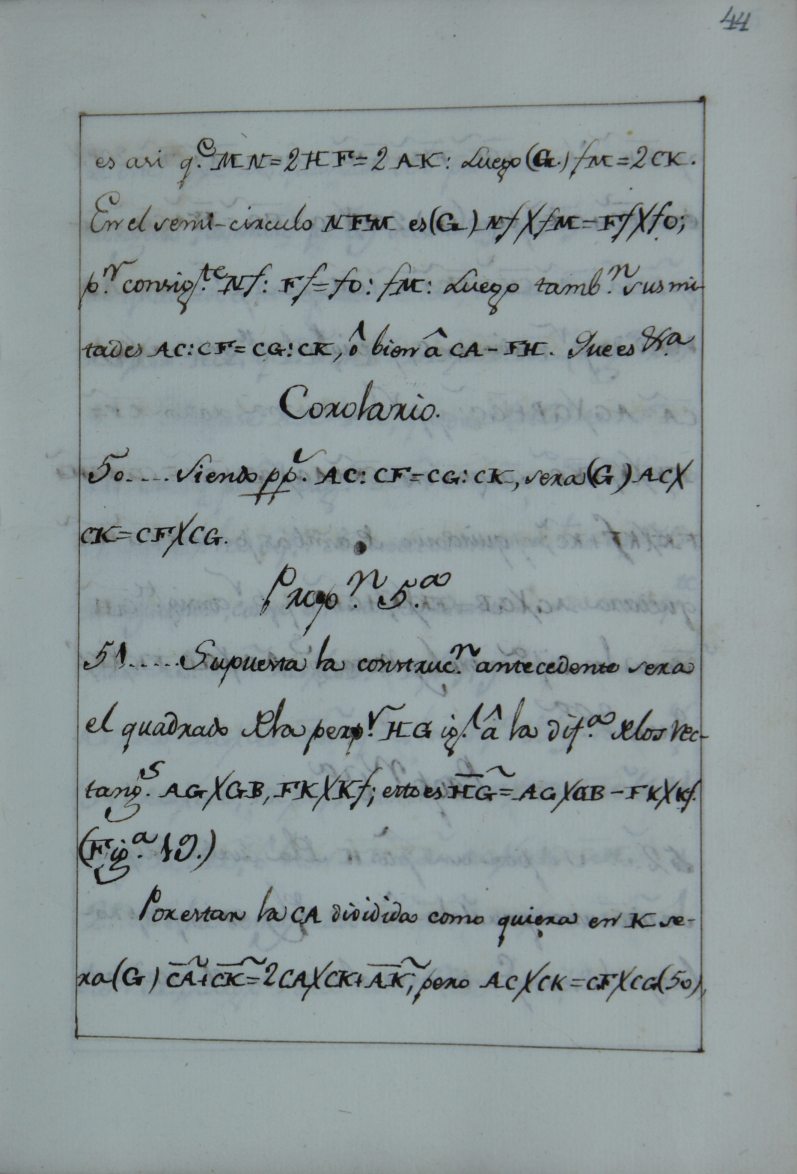 44
es asi q.e MN=2HF=2AK: Luego (G.) fM=2CK.
En el semi-circulo NFM es (G) Nf╳fM=Ff╳fO;
p.r consig.te Nf: Ff=fO: fM: Luego tamb.n sus mi-
tades AC:CF=CG:CK, ô bien â CA-FH. Que es &.a
Corolario.
50.... Siendo pp.l AC: CF=CG: CK, sera (G) AC╳
CK=CF╳CG.
Prop.n 5.a
51..... Supuesta la construc.n antecedente sera
el quadrado dela perp.r HG ig.l â la dif.a delos Rec-
tang.s AG╳GB, FK╳Kf; esto es H͞G͞~=AG╳GB-FK╳Kf.
(Fig.a 19.)
Por estar la CA dividida como quiera en K se-
ra (G) C͞A͞~+C͞K͞~=2CA╳CK+A͞K͞~; pero AC╳CK=CF╳CG (50),